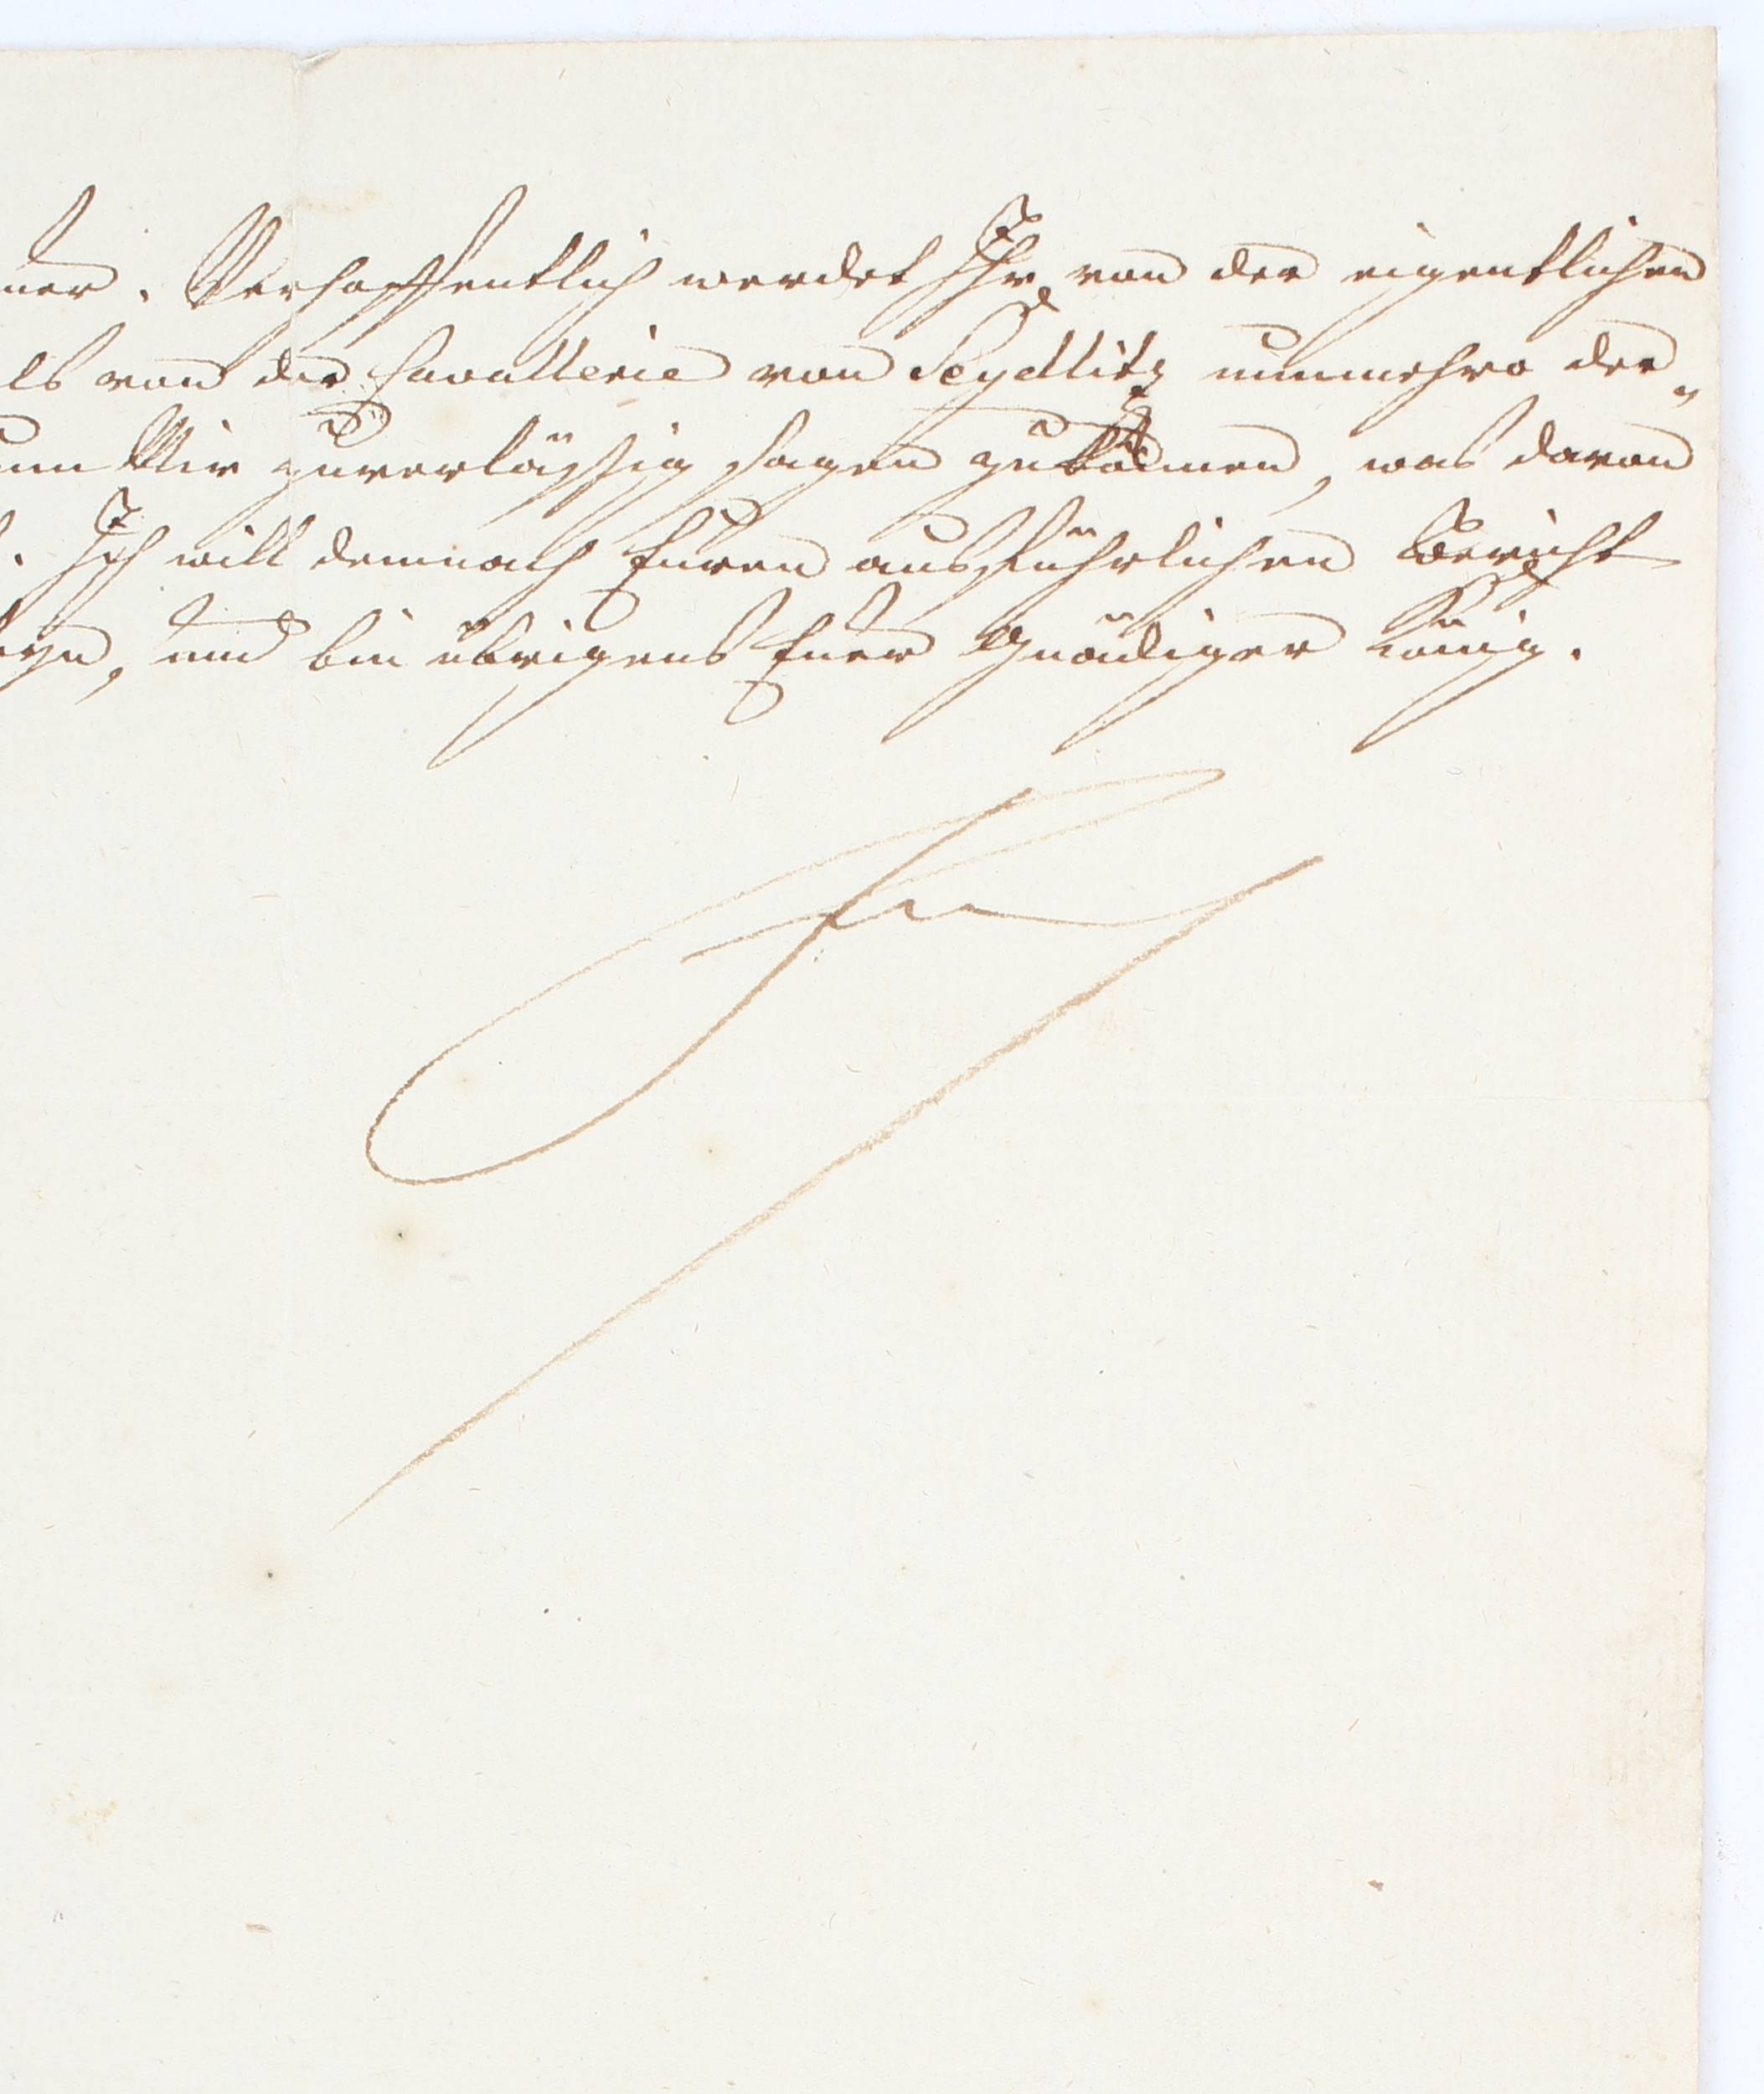 ner. Verhoffentlich werdet Ihr von der eigentlichen
ls von der Cavallerie von Seydlitz nunmehro der„
um Mir zuverläßig sagen zu können, was davon
Ich will demnach Euren ausführlichen Bericht
eyn, und bin übrigens Euer Gnädiger König.
Fr